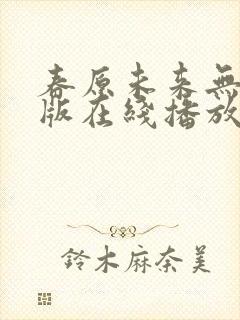 春原未来無
版在綫播放
鈴木麻奈美